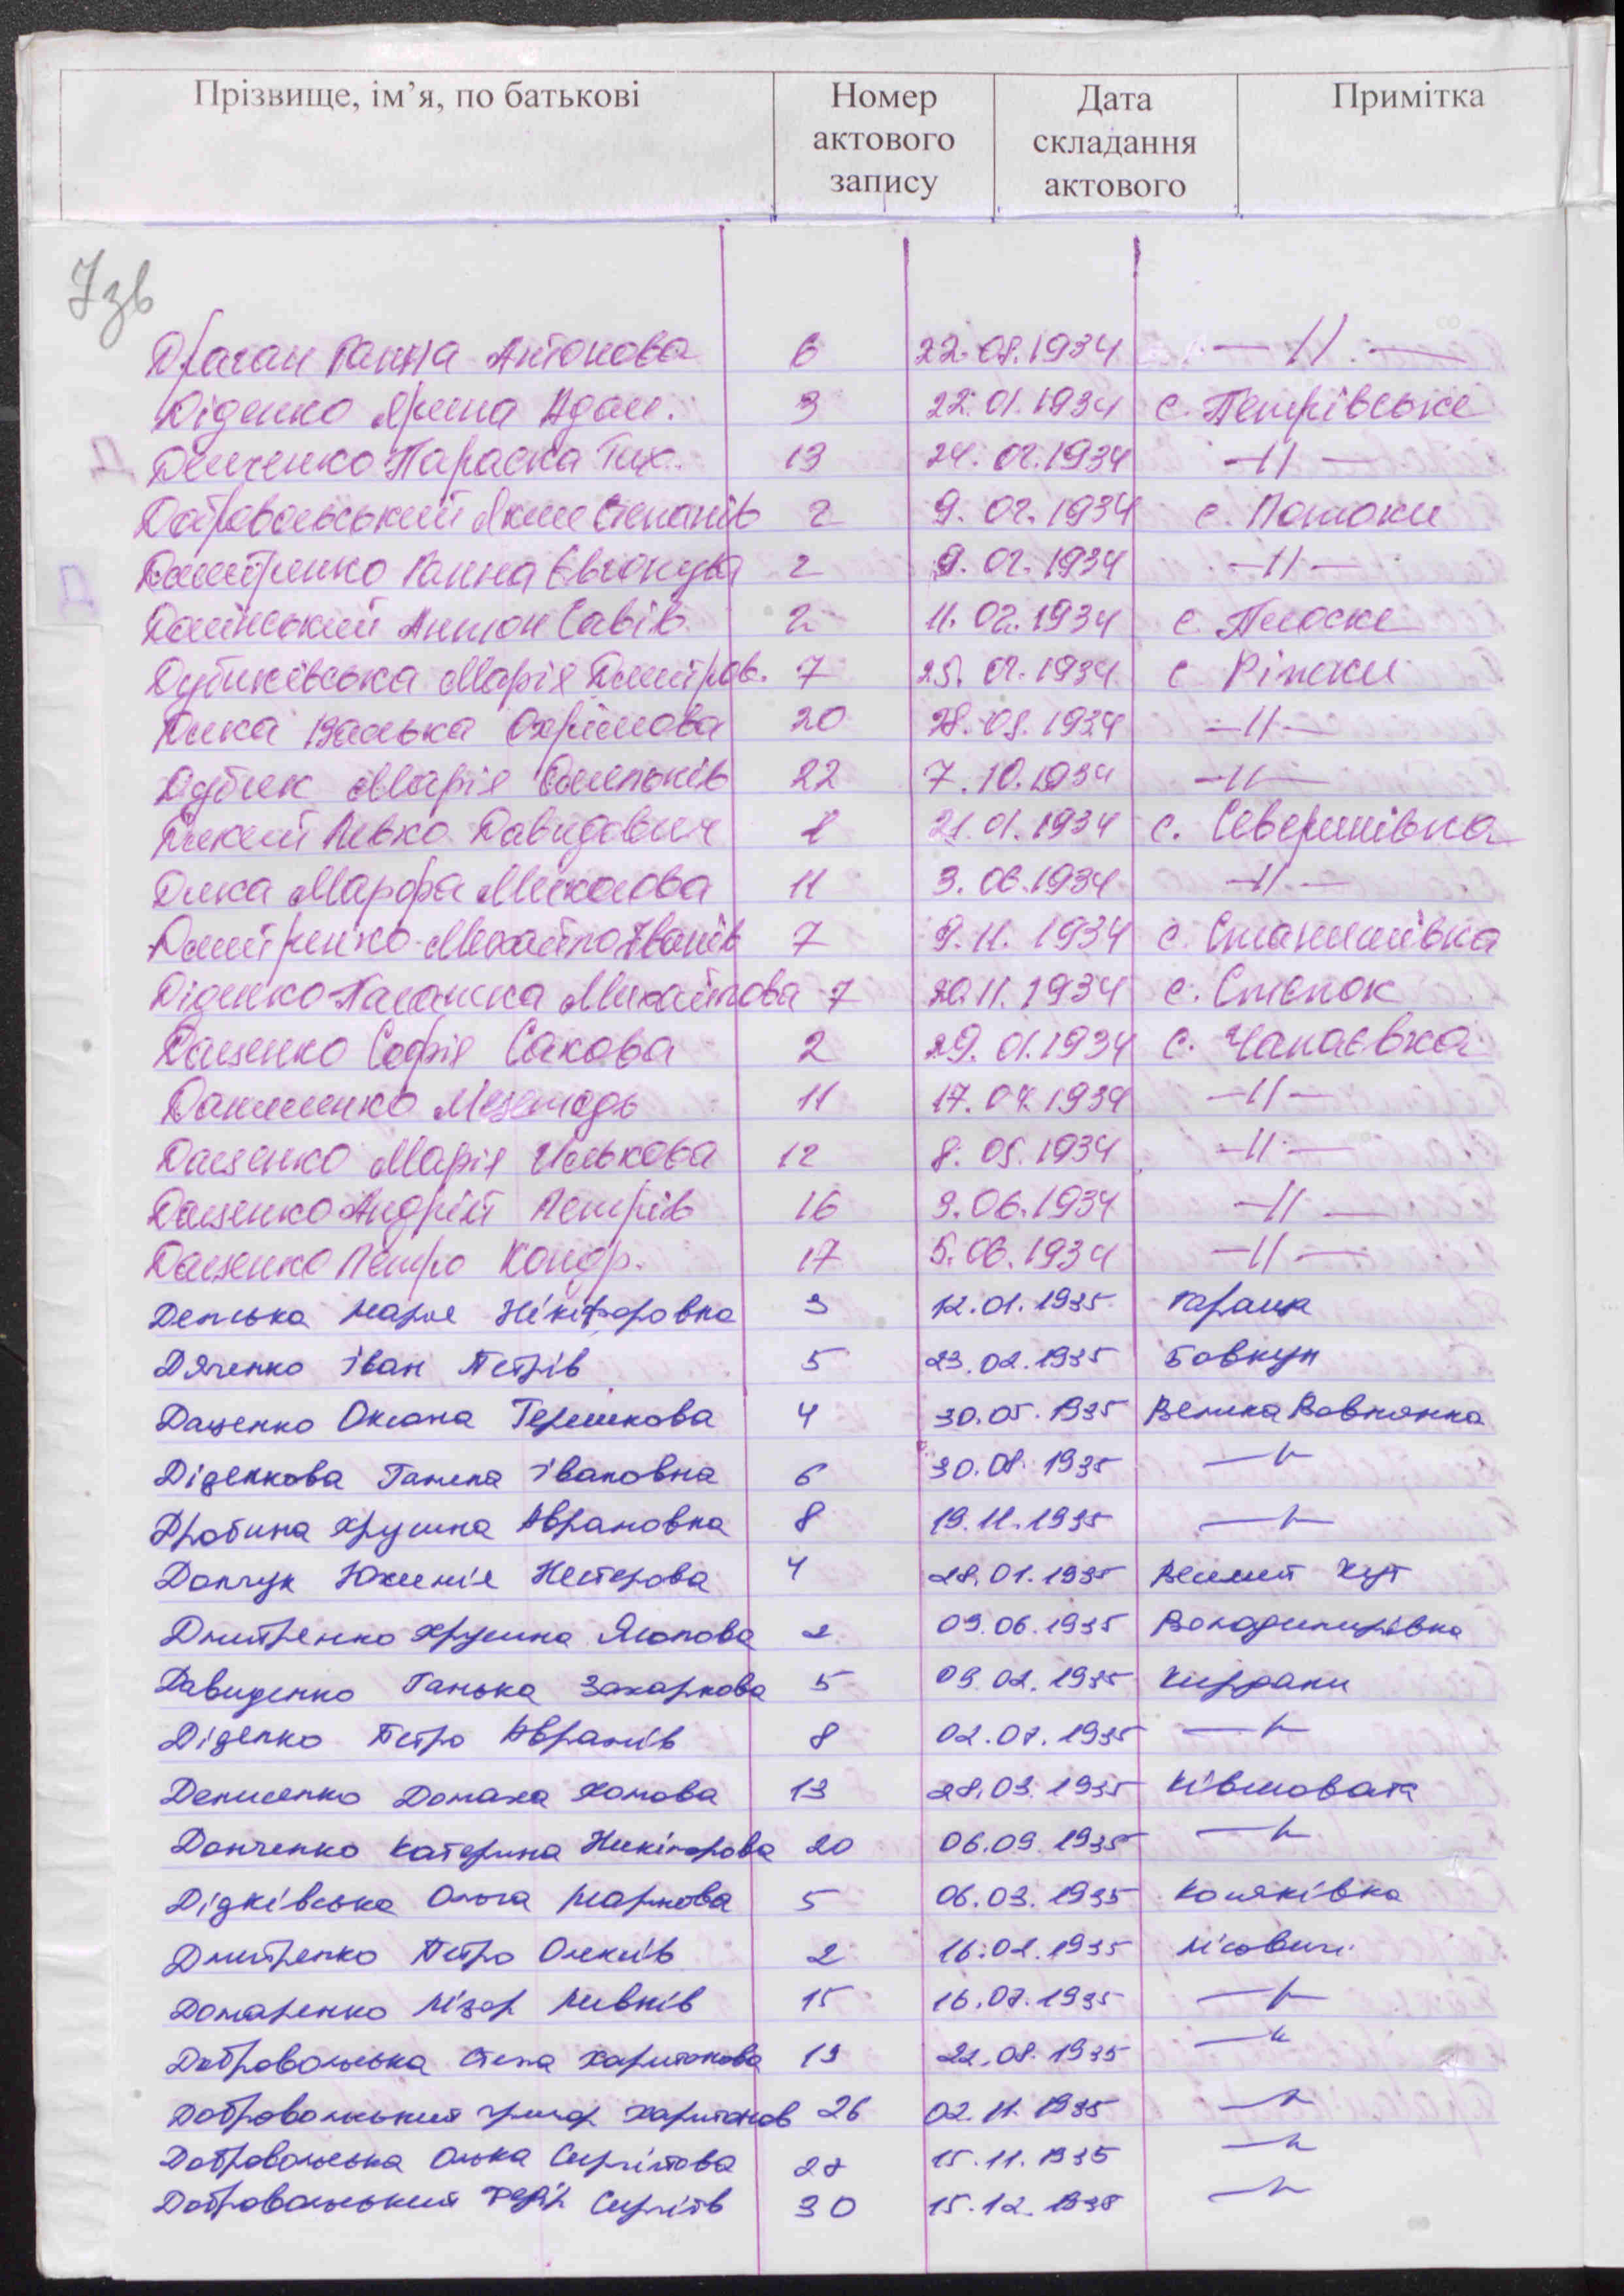 Прізвище, ім’я, по батькові Номер актового запису Дата складання актового Примітка
7зв
Драган Ганна Антонова 6 22.08.1934 —//—
Діденко Ярина Адам. 3 22.01.1934 с. Петрівське
Демченко Параска Тих. 13 24.02.1934 —//—
Добровольський Яким Степанів 2 9.02.1934 с. Потоки
Дмитренко Ганна Євгонува 2 9.02.1934 —//—
Домінський Антон Савів 2 11.02.1934 с. Плоске
Дубинківська Марія Дмитров. 7 25.02.1934 с Ріпки
Дика Василька Охрімова 20 28.08.1934 —//—
Дубик Марія Омельків 22 7.10.1934 —//—
Дикий Левко Давидович 1 21.01.1934 с. Северинівка
Дика Марфа Миколова 11 3.06.1934 —//—
Дмитренко Михайло Іванів 7 9.11.1934 с. Станишівка
Діденко Палажка Михайлова 7 20.11.1934 с. Степок
Даценко Софія Сакова 2 29.01.1934 с. Чапаєвка
Данименко 11 17.04.1934 —//—
Даценко Марія Ількова 12 8.05.1934 —//—
Даценко Андрій Петрів 16 3.06.1934 —//—
Даценко Петро Кондр. 17 5.06.1934 —//—
Депська Марія Нікіфоровна 3 12.01.1935
Дяченко Іван Петрів 5 23.02.1935 Бовкун
Даценко Оксана Терешкова 4 30.05.1935 Велика Вовнянка
Діденкова Ганна Івановна 6 30.08.1935 —//—
Дробина Хрушна Аврамовна 8 19.11.1935 —//—
Данчук Юхимія Нестерова 4 28.01.1935
Дмитренко Хрушна Яковова 2 09.06.1935 Володимирівка
Давиденко Ганька Захаркова 5 09.02.1935 Кирдани
Діденко Петро Аврамів 8 02.07.1935 —//—
Денисенко Домаха Хомова 13 28.03.1935 Ківшовата
Данченко Катерина Никіпорова 20 06.09.1935 —//—
Дідківська Ольга Маркова 5 06.03.1935 Косяківка
Дмитренко Петро Олексів 2 16.02.1935 Лісовичі
Домаренко 15 16.07.1935 —//—
Добровольська Степа Харитонова 19 22.08.1935 —//—
Добровольський Григор Харитонов 26 02.11.1935 —//—
Добровольська Олька Сергійова 27 15.11.1935 —//—
Добровольський Сергіїв 30 15.12.1938 —//—